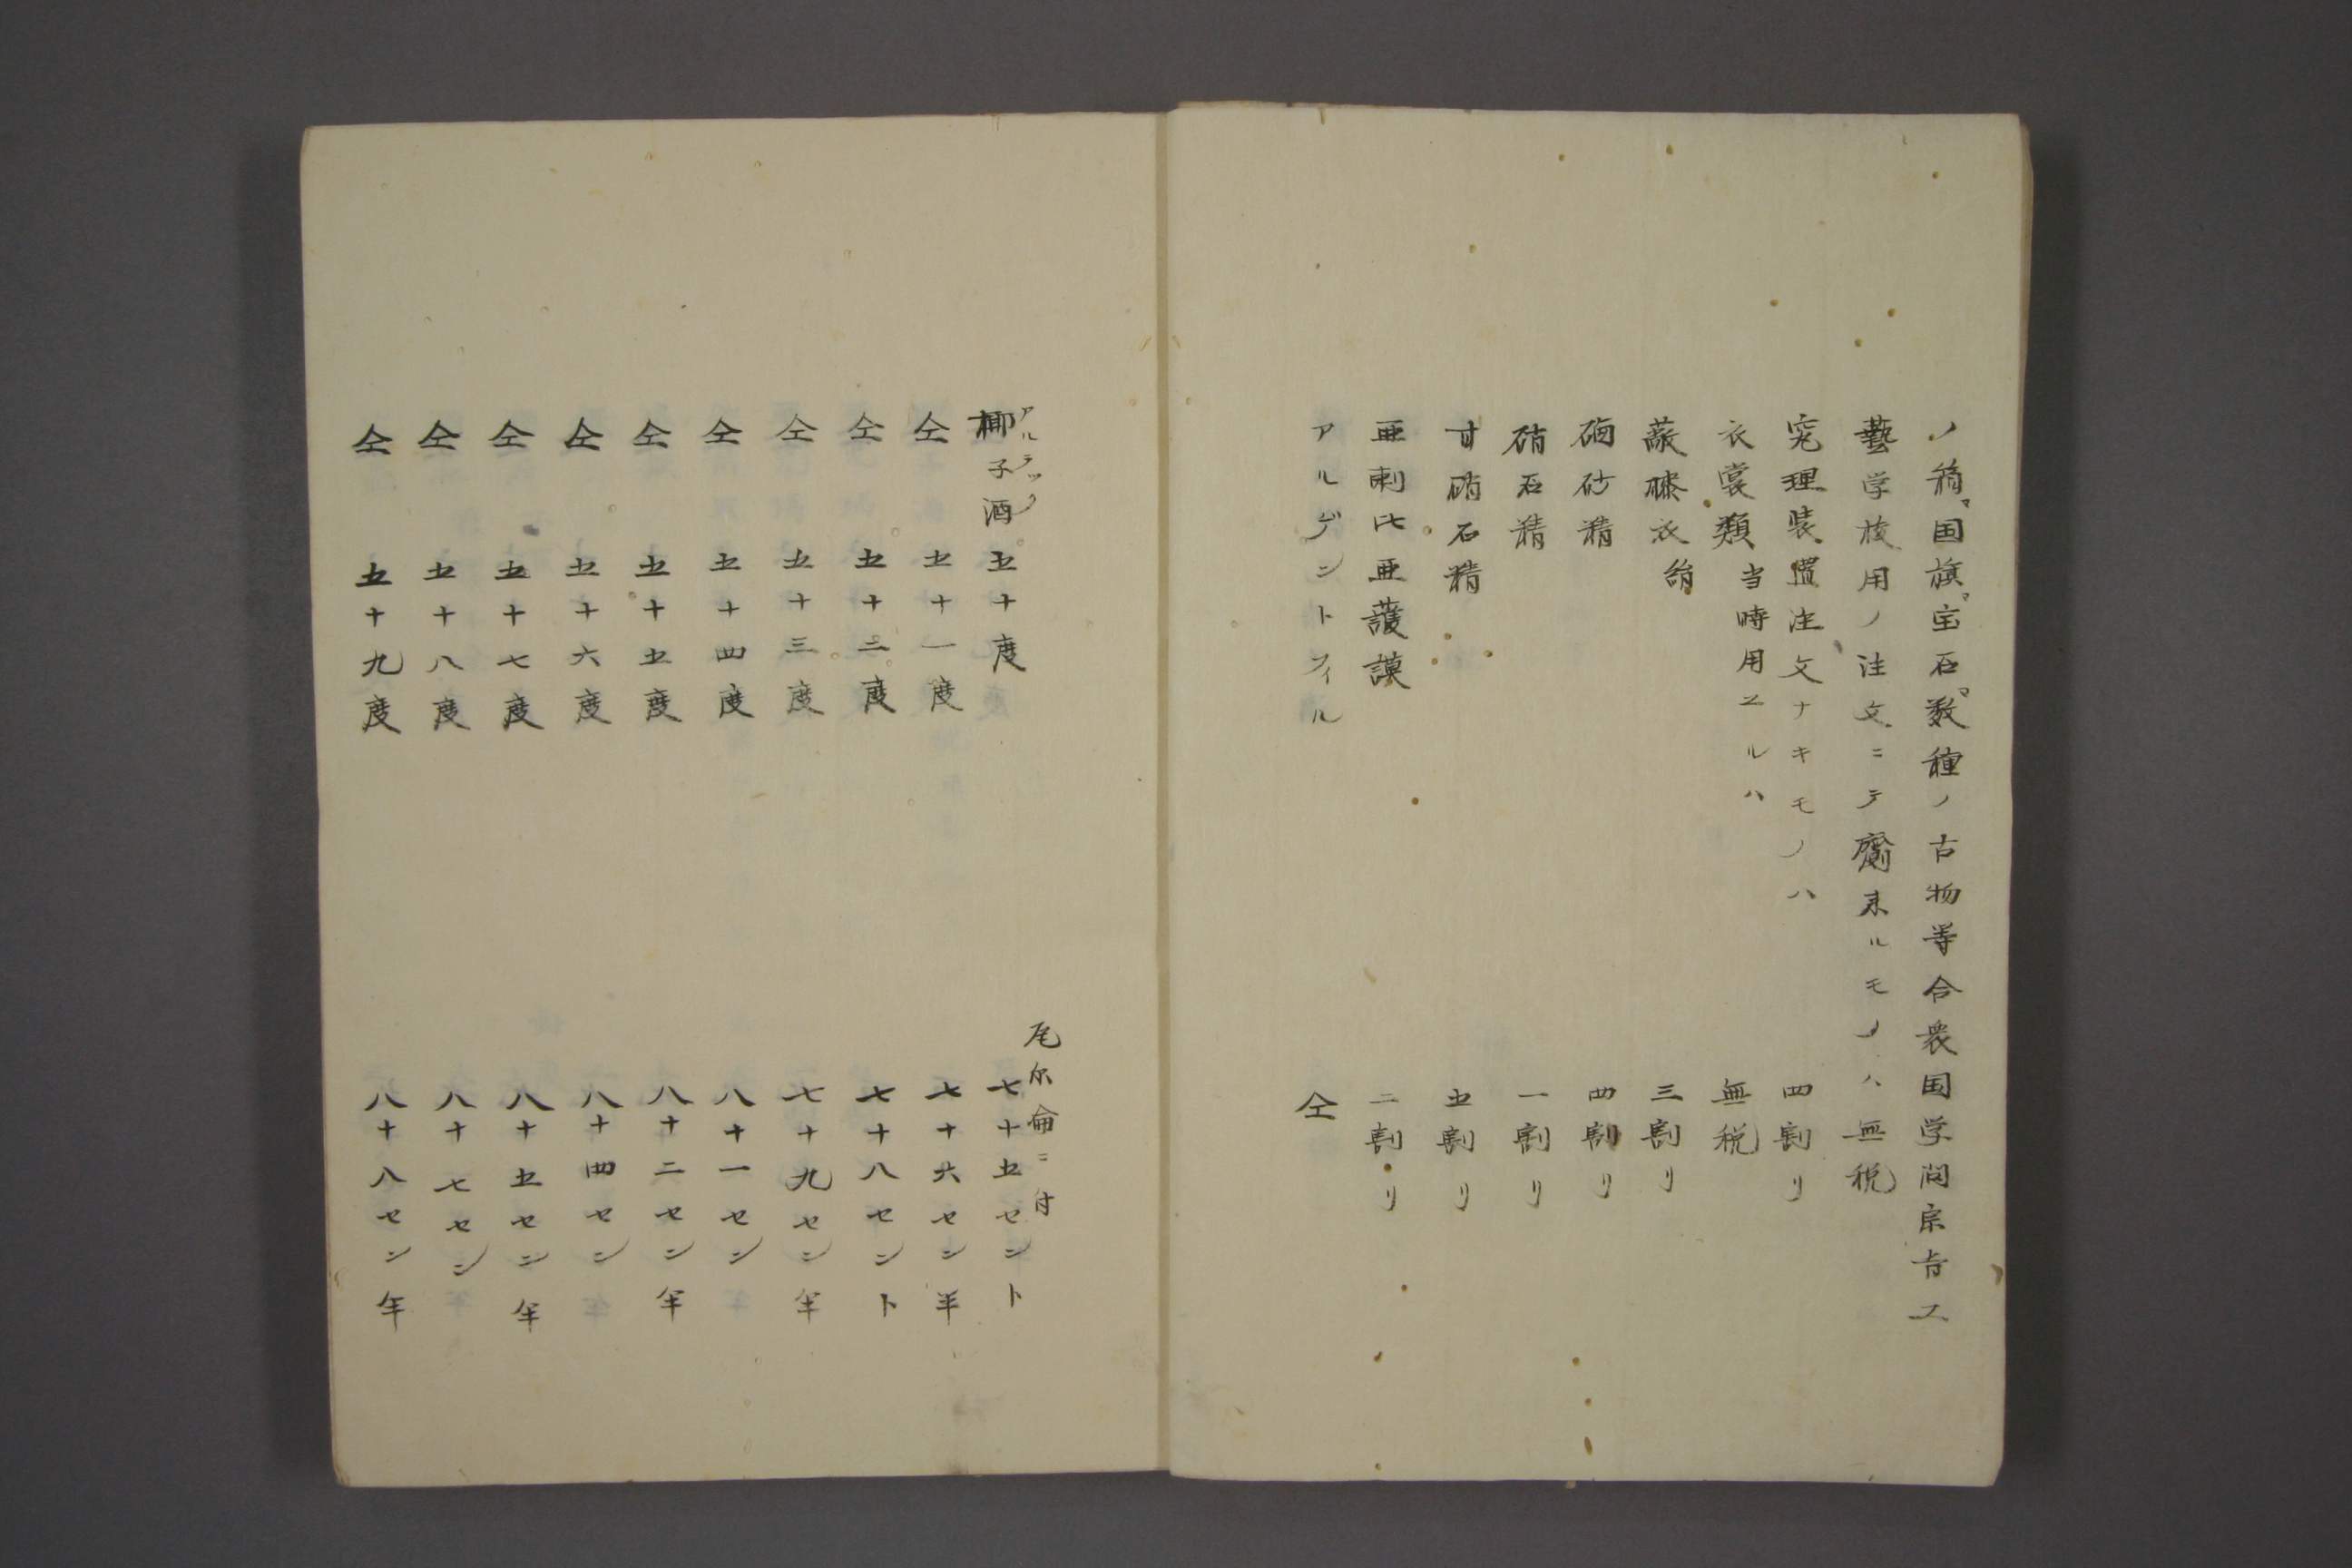 ノ稿国旗宝石数種ノ古物等合衆国学問宗旨工
藝学校用ノ注文ニテ齎来ルモノハ無税
究理装置注文ナキモノハ 四割リ
衣裳類当時用エルハ 無税
蔽膝衣飾 三割リ
硇砂精 四割リ
硝石精 一割リ
甘硝石精 五割リ
亜剌比亜護謨 二割リ
アルゲントフィル 仝
アルラック
尾尓侖ニ付
椰子酒五十度 七十五セント
仝 五十一度 七十六セン半
仝 五十二度 七十八セント
仝 五十三度 七十九セン半
仝 五十四度 八十一セン
仝 五十五度 八十二セン半
仝 五十六度 八十四セン
仝 五十七度 八十五セン半
仝 五十八度 八十七セン
仝 五十九度 八十八セン半